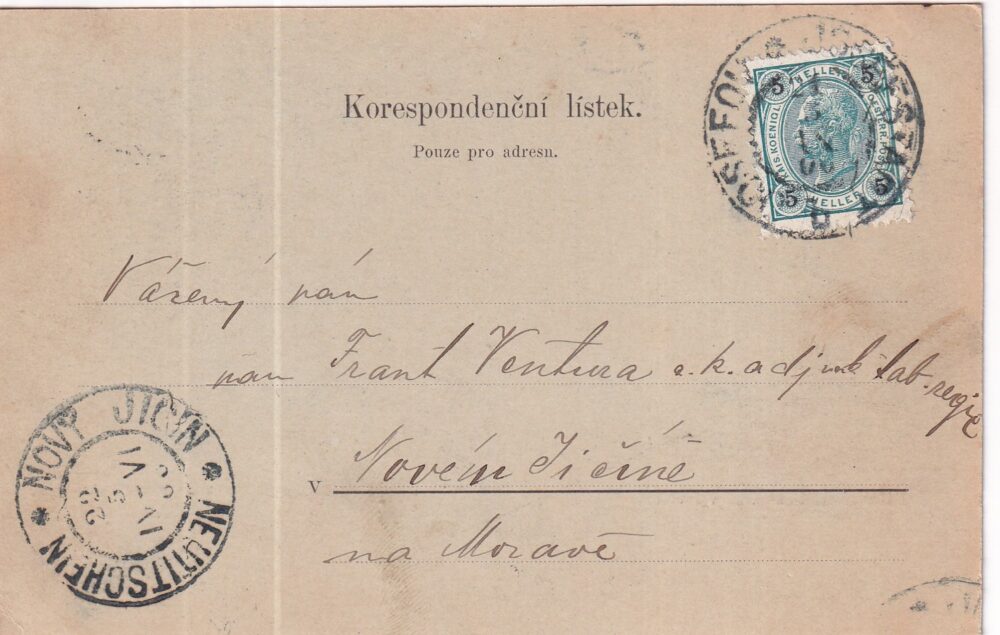 Korespondenční lístek.
Pouze pro adresn.
JOSEFOV * JOSEFSTADT
5 HELLER 5
5 HELLER 5
Vážený pán
pan Frant Ventura c. k. adjunk tab. regie
v Novém Jičíně
na Moravě
* NOVÝ JIČÍN * NEUTITSCHEIN